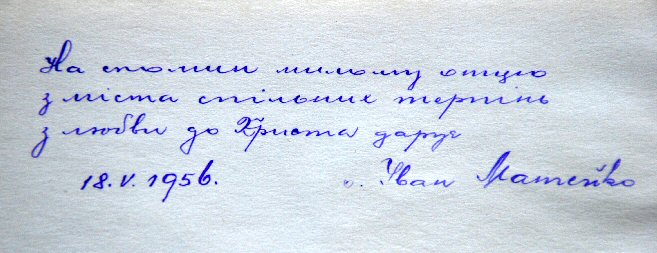 На спомин милому отцю
з міста спільних терпінь
з любви до Христа дарує
18.V.1956. о. Іван Матейко